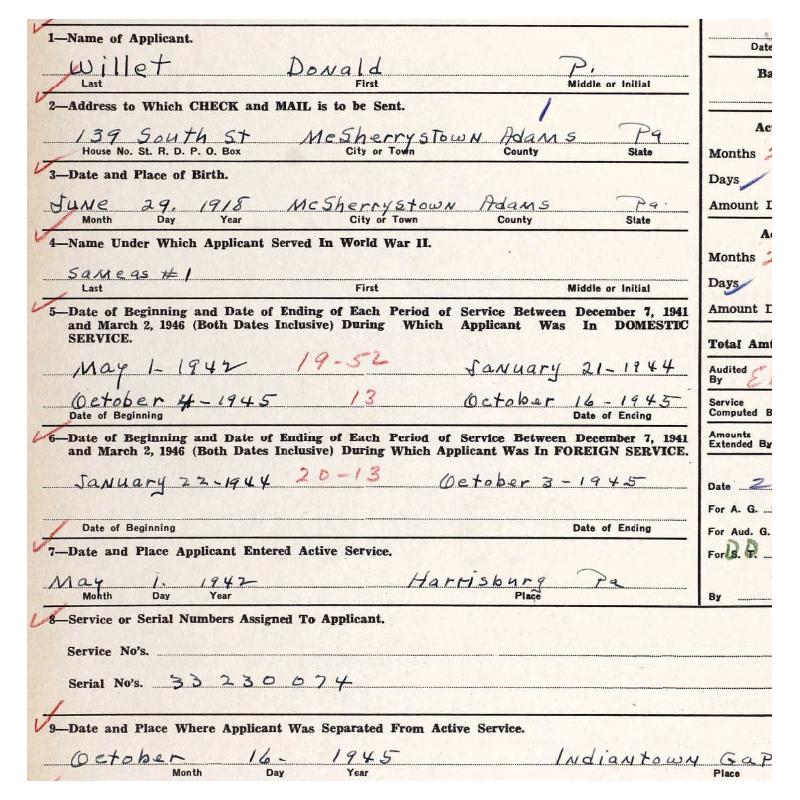 1—Name of Applicant.
Willet Donald P.
Last First Middle or Initial
2—Address to Which CHECK and MAIL is to be Sent.
139 South St McSherrystown Adams Pa
House No. St. R. D. P. O. Box City or Town County State
3—Date and Place of Birth.
June 29, 1918 McSherrystown Adams Pa.
Month Day Year City or Town County State
4—Name Under Which Applicant Served In World War II.
Same as #1
Last First Middle or Initial
5—Date of Beginning and Date of Ending of Each Period of Service Between December 7, 1941
and March 2, 1946 (Both Dates Inclusive) During Which Applicant Was In DOMESTIC
SERVICE.
May 1- 1942 19-52 January 21-1944
October 4-1945 13 October 16-1945
Date of Beginning Date of Ending
6—Date of Beginning and Date of Ending of Each Period of Service Between December 7, 1941
and March 2, 1946 (Both Dates Inclusive) During Which Applicant Was In FOREIGN SERVICE.
January 22-1944 20-13 October 3-1945
Date of Beginning Date of Ending
7—Date and Place Applicant Entered Active Service.
May 1. 1942 Harrisburg Pa
Month Day Year Place
8—Service or Serial Numbers Assigned To Applicant.
Service No's.
Serial No's. 33 230 074
9—Date and Place Where Applicant Was Separated From Active Service.
October 16- 1945 Indiantown Gap
Month Day Year Place
Date
Ba
Ac
Months 2
Days
Amount D
Ac
Months 2
Days
Amount D
Total Amt
Audited
By
Service
Computed B
Amounts
Extended By
Date 2
For A. G.
For Aud. G.
For S. T.
By